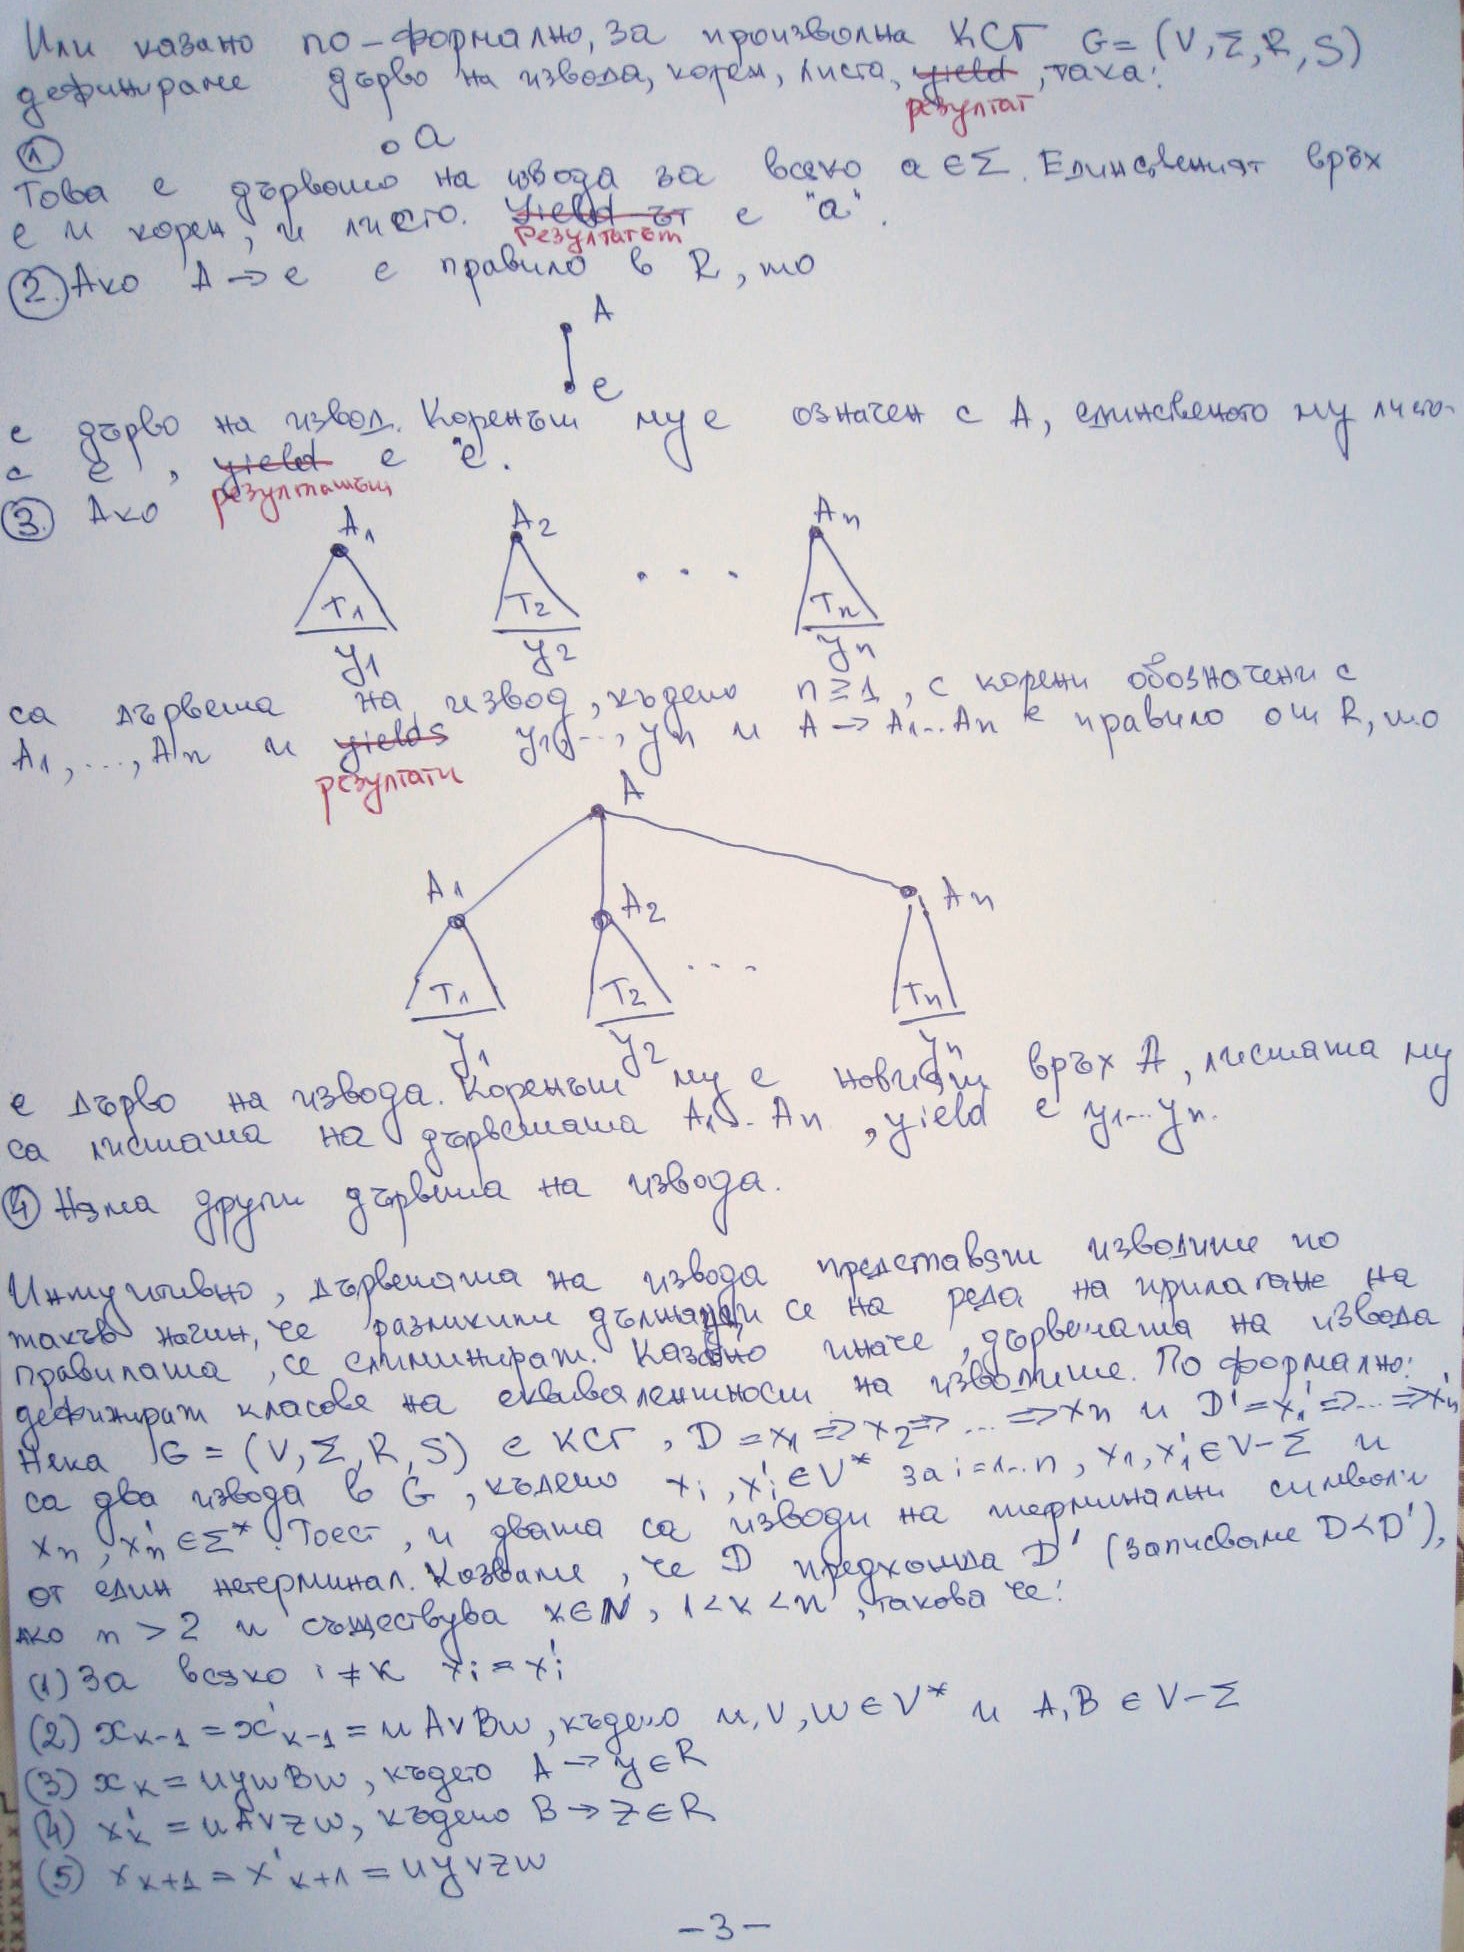 Или казано по-формално, за произволна КСГ G = (V, Σ, R, S)
дефинираме дърво на извода, корен, листа, yield, така:
резултат
1
a
Това е дървото на извода за всяко a ∈ Σ. Единственият връх
е и корен, и листо. Yield-ът е "a".
Резултатът
2. Ако A → e е правило в R, то
A
e
е дърво на извод. Коренът му е означен с A, единственото му листо-
с e, yield е "e".
резултатът
3. Ако
A1 A2 An
T1 T2 ... Tn
y1 y2 yn
са дървета на извод, където n ≥ 1, с корени обозначени с
A1, ..., An и yields y1, ..., yn и A → A1...An е правило от R, то
резултати
A
A1 A2 An
T1 T2 ... Tn
y1 y2 yn
е дърво на извода. Коренът му е новият връх A, листата му
са листата на дърветата A1...An, yield е y1...yn.
4 Няма други дървета на извода.
Интуитивно, дърветата на извода представят изводите по
такъв начин, че разликите дължащи се на реда на прилагане на
правилата, се елиминират. Казано иначе, дърветата на извода
дефинират класове на еквивалентност на изводите. По формално:
Нека G = (V, Σ, R, S) е КСГ, D = x1 ⇒ x2 ⇒ ... ⇒ xn и D' = x1' ⇒ ... ⇒ xn'
са два извода в G, където xi, xi' ∈ V* за i = 1...n, x1, x1' ∈ V - Σ и
xn, xn' ∈ Σ*. Тоест, и двата са изводи на терминални символи
от един нетерминал. Казваме, че D предхожда D' (записваме D < D'),
ако n > 2 и съществува k ∈ N, 1 < k < n, такова че:
(1) За всяко i ≠ k xi = xi'
(2) xk-1 = x'k-1 = uAvBw, където u, v, w ∈ V* и A, B ∈ V - Σ
(3) xk = uywBw, където A → y ∈ R
(4) x'k = uAvzw, където B → z ∈ R
(5) xk+1 = x'k+1 = uyvzw
- 3 -